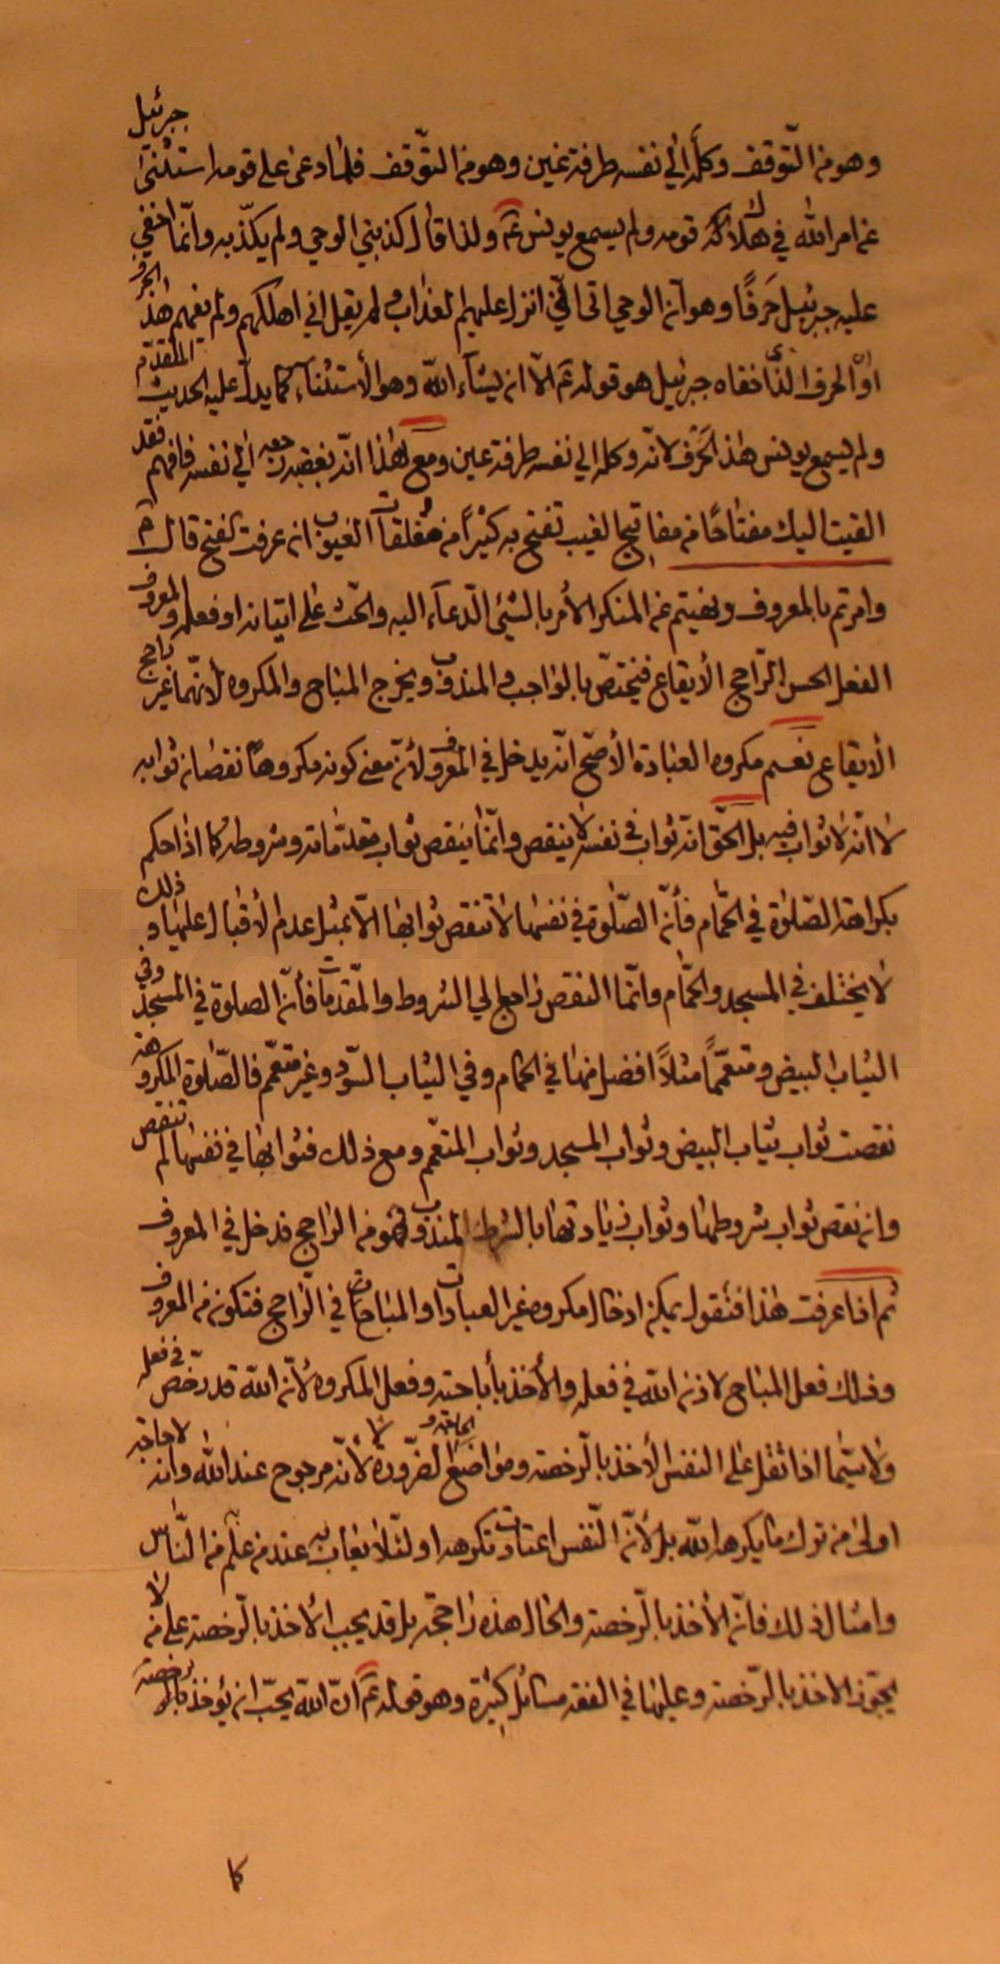 وهو من التّوقف وكلّه الى نفسه طرفة عين وهو من التّوقف فلمّا دعى على قومه استثنى جبرئيل
عن امر الله في هلاك قومه ولم يسمع يونس عم ولذا قال كذبني الوحي ولم يكذّبه وانّما اخفي
عليه جبرئيل حَرفًا وهو انّ الوحي اتى انّي انزل عليهم العذاب ولم يقل اني اهلكهم ولم يفهم هذا الحرف
اوّ الحرف الذي اخفاه جبرئيل هو قوله تم الّا ان يشآء اللّه وهو الأستثنآء كما يدلّ عليه الحديث المتقدّم
ولم يسمع يونس هذا الحَرف لانّه وكله الى نفسه طرفة عين ومع هذا انّ بغضبه الى نفسه فافهم فقد
القيت اليك مفتاحًا من مفاتيح الغيب تفتح به كثيرًا من مُغلقات الغيوب ان عرفت الفتح قال
وامرتم بالمعروف ونهيتم عن المنكر الأمر بالشيئ الدّعآء اليه والحث على اتيانه او فعله والمعروف
الفعل الحسن الرّاجح الأيقاع فيختصّ بالواجب و المندوب ويخرج المباح والمكروه لأنّهما غير راجح
الأيقاع نعم مكروه العبادة الأصّح انّه يدخل في المعروف لأنّ معنى كونه مكروهًا نقصان ثوابه
لا انّه لا ثواب فيه بل الحقّ انّه ثواب في نفسه لا ينقص وانّما ينقص ثواب مقدّماته وشروطه كما اذا حكم
بكراهة الصّلوة في الحمّام فأنّ الصّلوة في نفسها لا تنقص ثوابها الّا بمثل عدم الأقبال عليها و ذلك
لا يختلف في المسجد والحمّام وانّما النقص راجع الى الشروط والمقدّمات فأنّ الصلوة في المسجد وفي
الثياب البيض ومتعمّمًا مثلًا افضل منها في الحمام وفي الثياب السّود وغير متعمّم فالصّلوة المكروهة
نقصت ثواب ثياب البيض وثواب المسجد وثواب المتعمّم ومع ذلك فثوابها في نفسها لم تنقص
وان نقص ثواب شروطها وثواب زيادتها بالشرط المندوب فهو من الراجح فدخل في المعروف
ثم اذا عرفت هذا فنقول يمكن ادخال مكروه غير العبادات او المباحات في الرّاجح فتكون من المعروف
وذلك فعل المباح لاذن الله في فعله والأخذ بأباحته وفعل المكروه لأنّ اللّه قد رخّص في فعله
ولا سيّما اذا ثقل على النفس الأخذ بالرّخصة ومواضع الضرورة لا لأنّه مرجوح عند الله وانّه
اولى من ترك ما يكرهه اللّه بل لأنّ النّفس اعتادت تكرهه او لئلّا يعاب به عند من علم من النّاس
وامثال ذلك فانّ الأخذ بالرّخصة والحال هذه راجحة بل قد يجب الأخذ بالرّخصة على من لا
يجوّز الاخذ بالرّخصة وعليها في الفقه مسائل كثيرة وهو قوله عم انّ اللّه يحبّ ان يؤخذ برخصته
كما